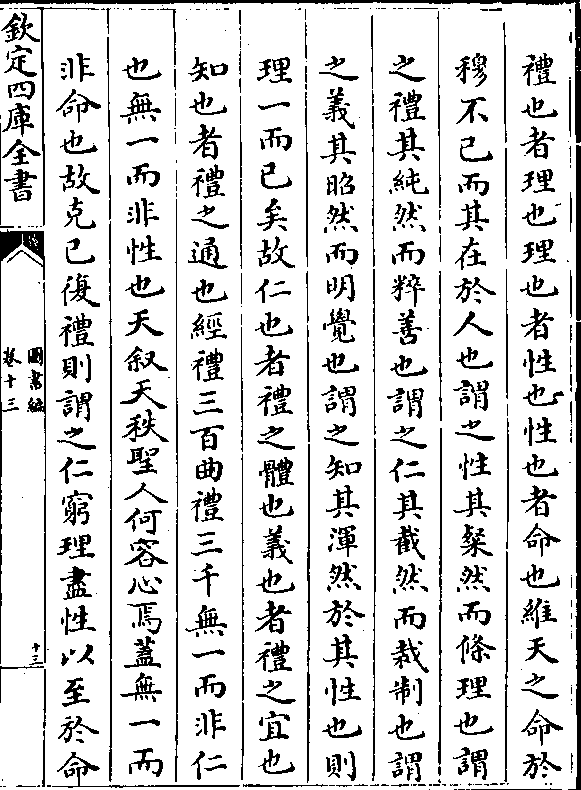 禮也者理也理也者性也性也者命也維天之命於
穆不已而其在於人也謂之性其粲然而條理也謂
之禮其純然而粹善也謂之仁其截然而裁制也謂
之義其昭然而明覺也謂之知其渾然於其性也則
理一而已矣故仁也者禮之體也義也者禮之宜也
知也者禮之通也經禮三百曲禮三千無一而非仁
也無一而非性也天叙天秩聖人何容心焉蓋無一而
非命也故克已復禮則謂之仁窮理盡性以至於命
欽定四庫全書
圖書編
卷十三
十三